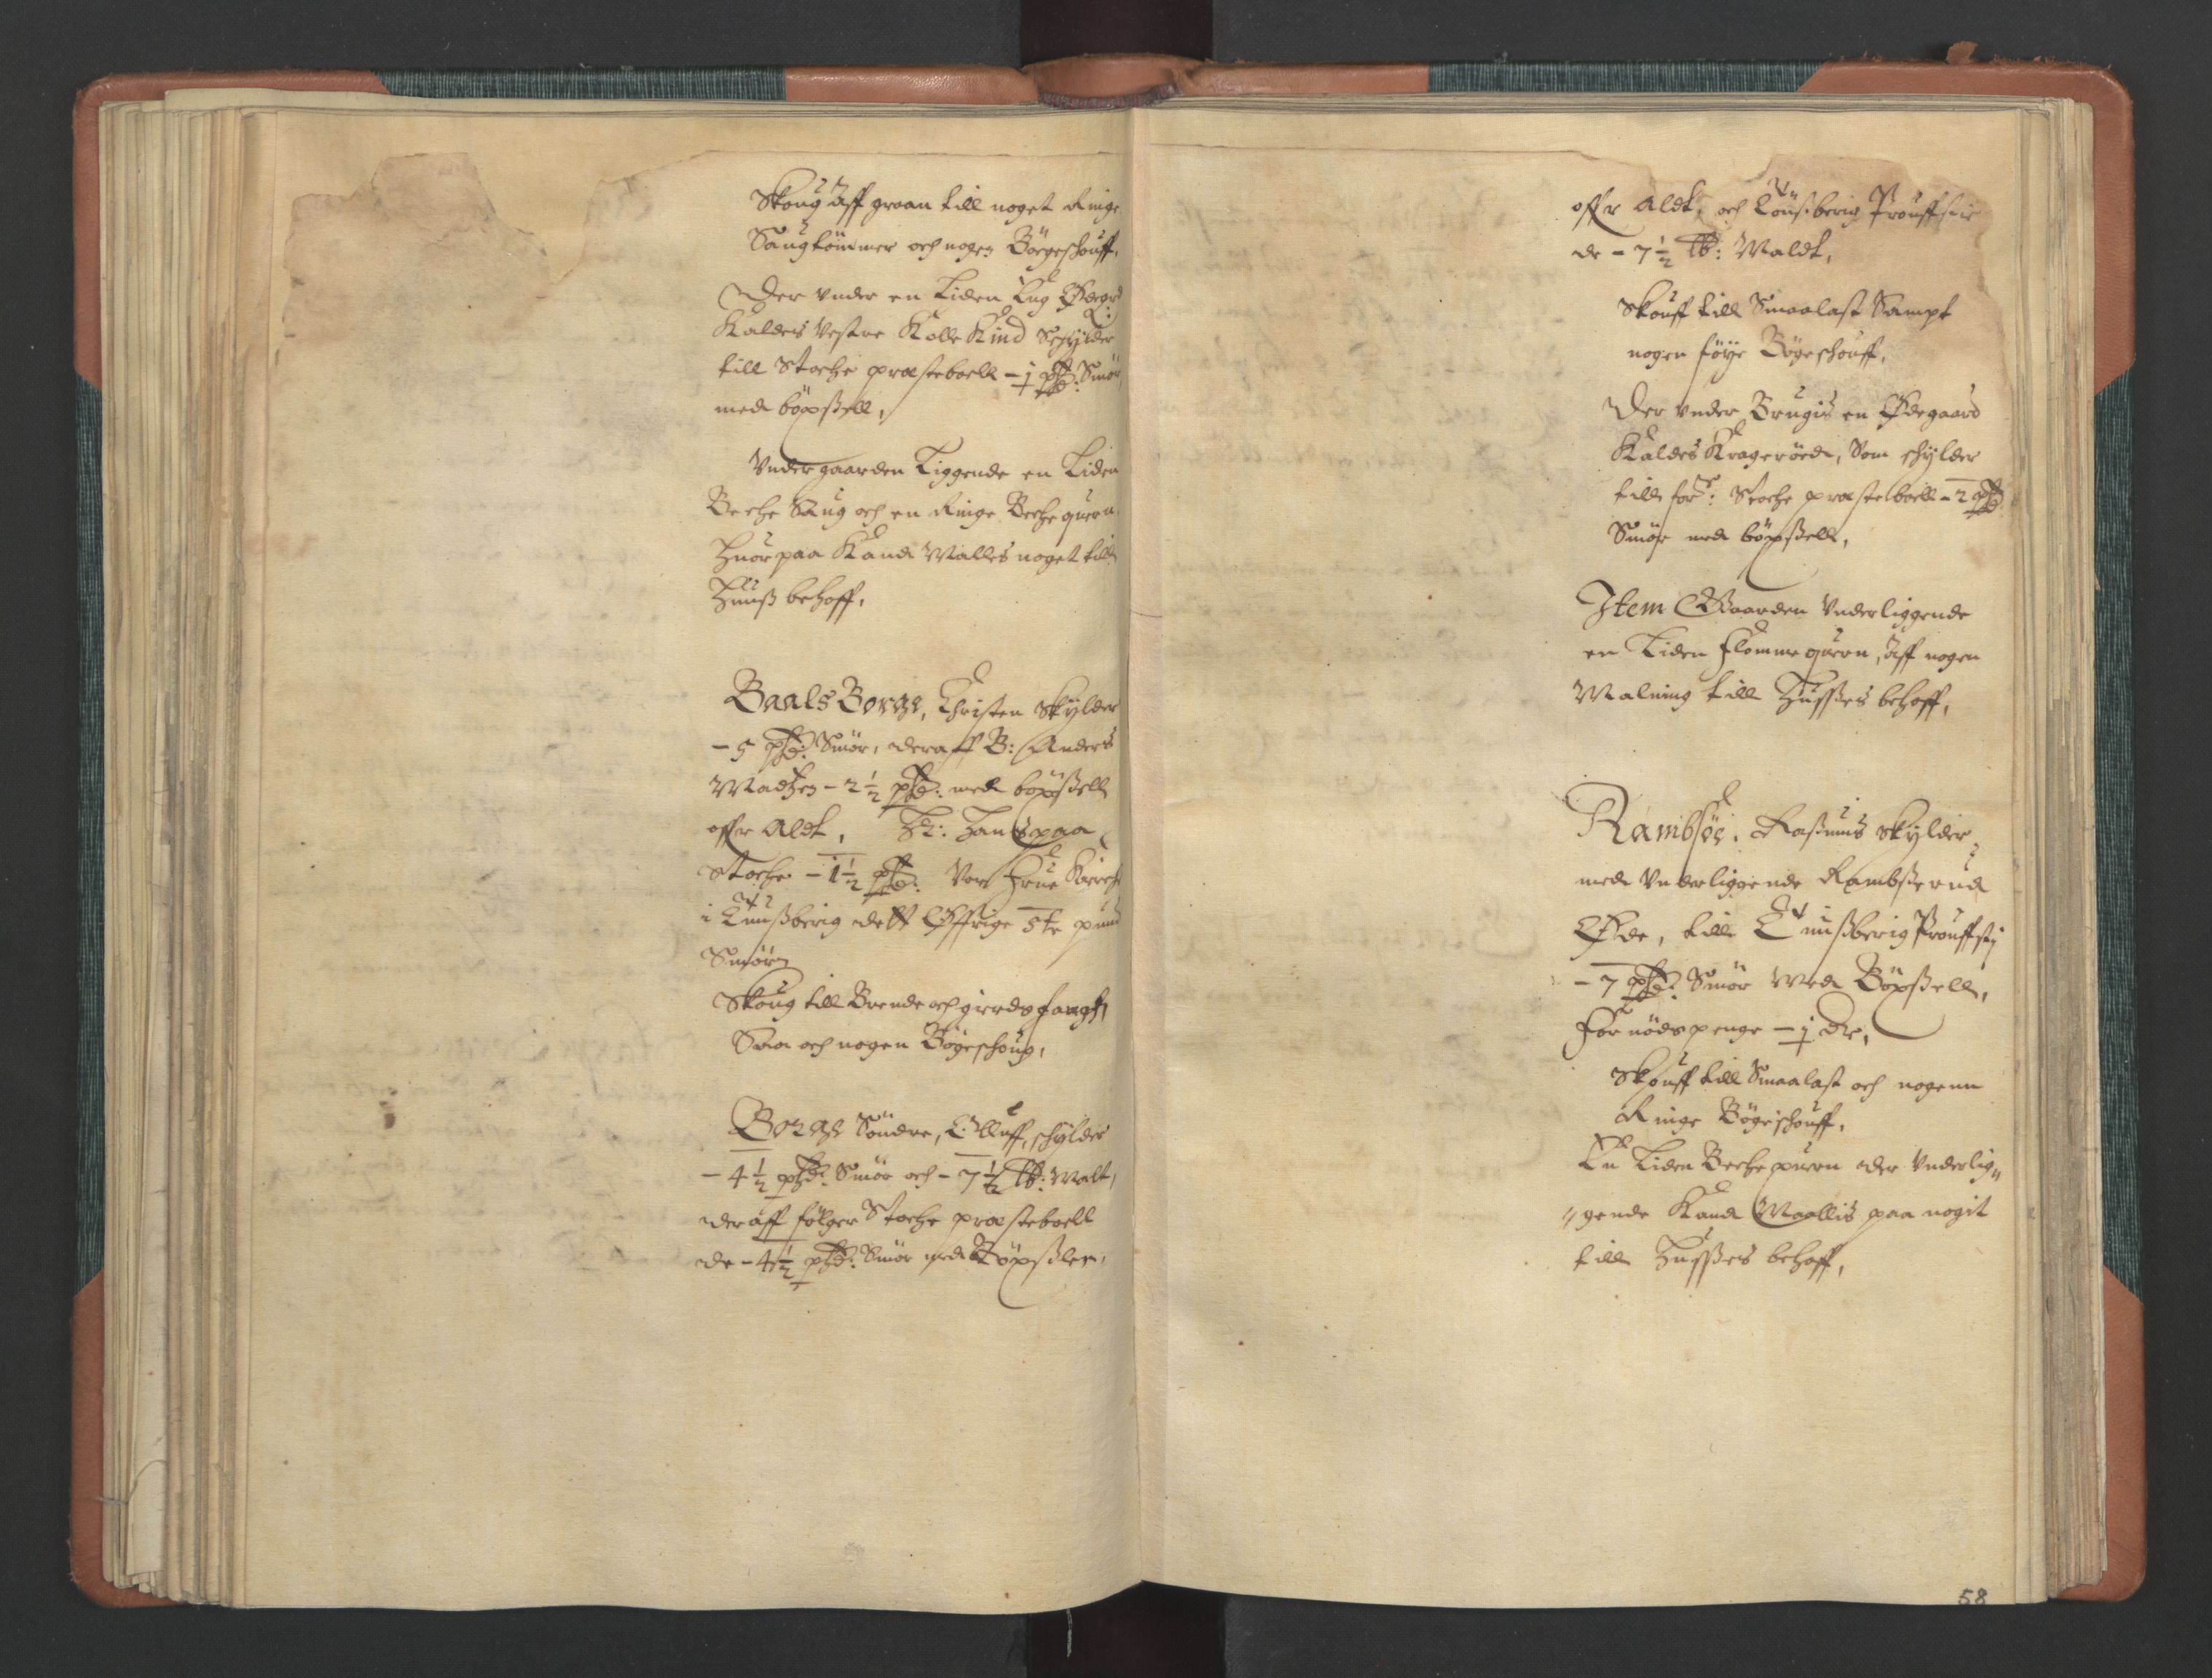 Skoug aff graan till noget Ringe
Saugtømmer och nogen Bøgeschouff,
Der vnder en Liden Øde
Kaldes Vestre Kolle Kind Schylder
till Stoche præsteboell – 1 pd: Smør
med böxsell,
Vnder gaarden Liggende en Liden
Beche Saug och en Ringe Beche quern,
Huor paa Kand Malles noget till
Huuß behoff,
Baals Borge, Christen Skylder
– 5 pd: Smør, deraff B: Anders
Madtzen – 2½ pd: med böxsell
offr Aldt, Hr: Hans paa
Stoche – 1½ pd: Vor Frue Kirche
i Tunßberig dett Øffrige 5te pund
Smør
Skoug till Brende och gierdsfangh,
Saa och nogen Bøgeschoug,
Borge Søndre, Olluff, schylder
– 4½ pd: Smør och – 7½ lb: Malt,
deraff følger Stoche præsteboell
de – 4½ pd: Smør med Böxsler,
offr Aldt, och Tønßberig Prouffstie
de – 7½ lb: Maldt,
Skouff till Smaalast Sampt
nogen føye Bøgeschouff,
Der vnder Brugis en Ødegaard
Kaldes Kragerøed, Som schylder
till for: Stoche præsteboell – 2 pd
Smør med böxsell,
Item Gaarden Vnderliggende
en Liden Flomme quern, Aff nogen
Malning till Hussßes behoff,
Rambsøe, Rasmus Skylder
med Vnderliggende Rambßerud
Øde, till Tunßberig Prouffstj
– 7 pd: Smør Med Böxsell,
Fornødspenge – 1 dr,
Skouff till Smaalast och nogenn
Ringe Bøgeschouff,
En Liden Beche quern der Vnderlig„
„gende Kand Maallis paa nogit
till Hussßes behoff,
58